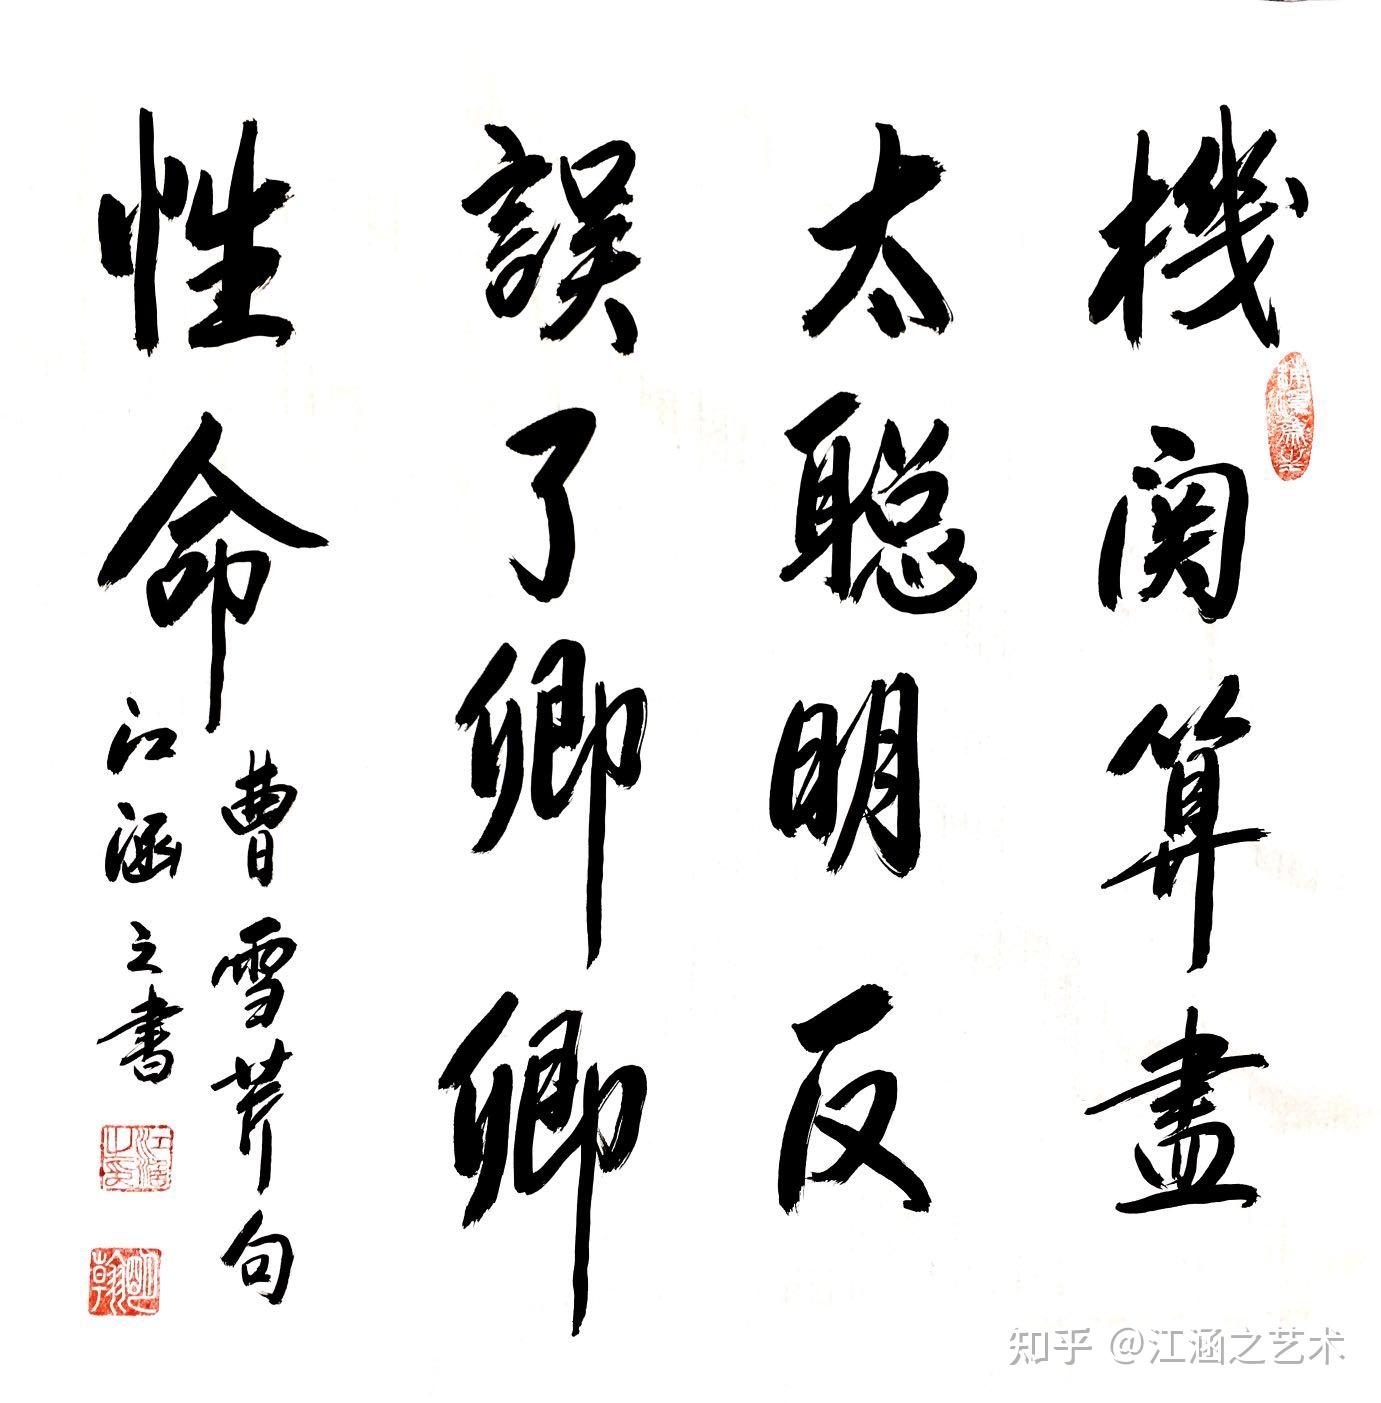 機関算盡
太聪明反
誤了卿卿
性命
曹雪芹句
江涵之書
江涵之印
知乎 @江涵之艺术